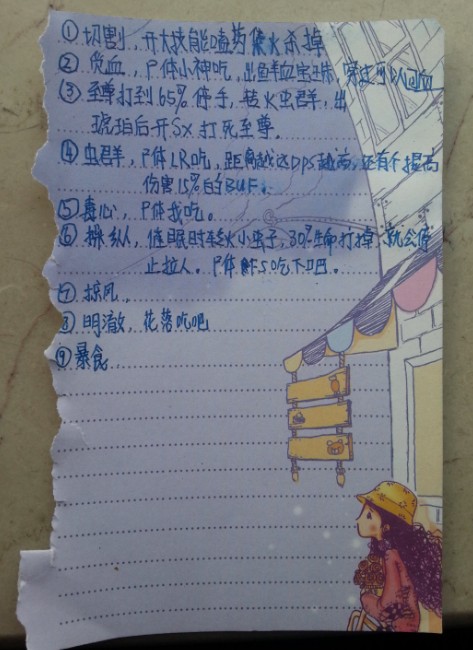 ① 切割，开大技能嗑药集火杀掉
② 优血，尸体小神吃，出鲜血宝珠，穿过可以回血
③ 至尊打到65%停手，转火虫群，出
琥珀后开SX打死至尊。
④ 虫群，尸体LR吃，距离越远DPS越高，还有个提高
伤害15%的BUF。
⑤ 毒心，尸体我吃。
⑥ 操纵，催眠时转火小虫子，30%生命打掉，就会停
止拉人。尸体FS吃下吧。
⑦ 掠风，
⑧ 明澈，花落吃吧
⑨ 暴食